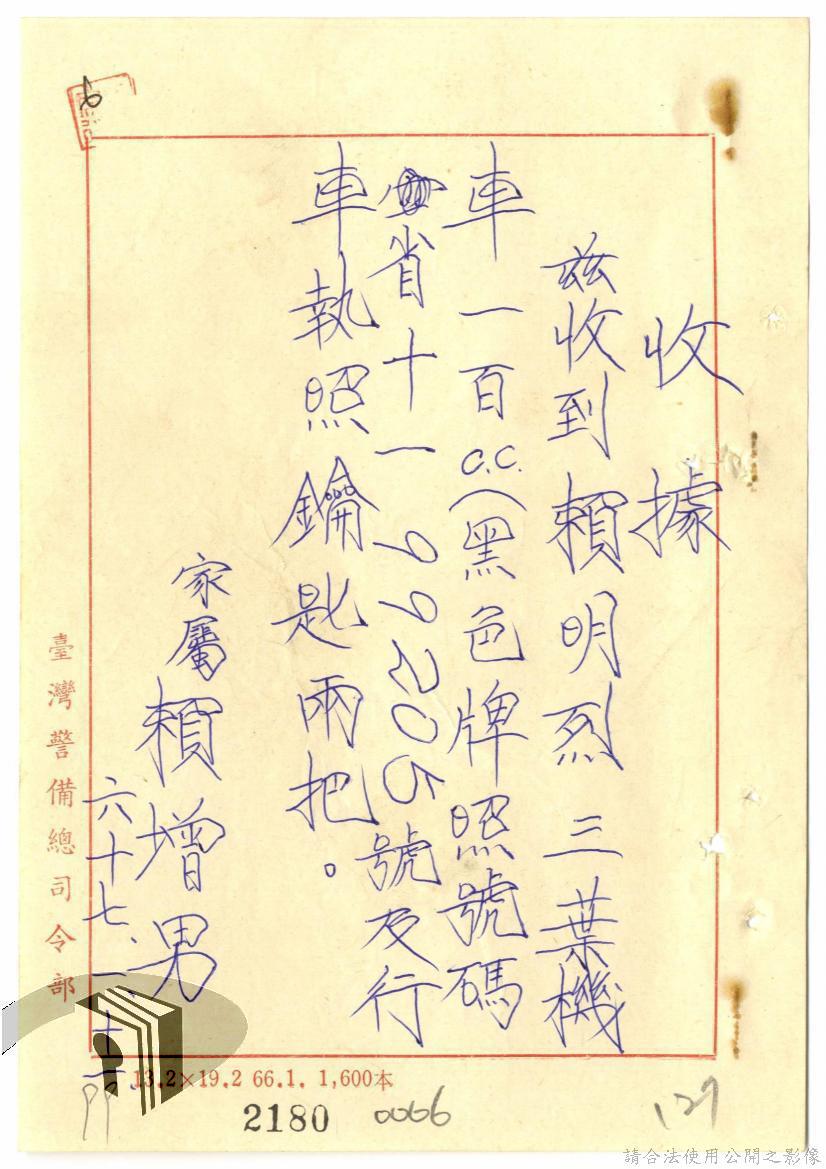 收據
茲收到賴明烈三葉機
車一百c.c.(黑色牌照號碼
省十一99205號及行
車執照鑰匙兩把。
家屬賴增男
六十七、一、十三
臺灣警備總司令部
13.2×19.2 66.1. 1,600本
2180 0066
127
請合法使用公開之影像